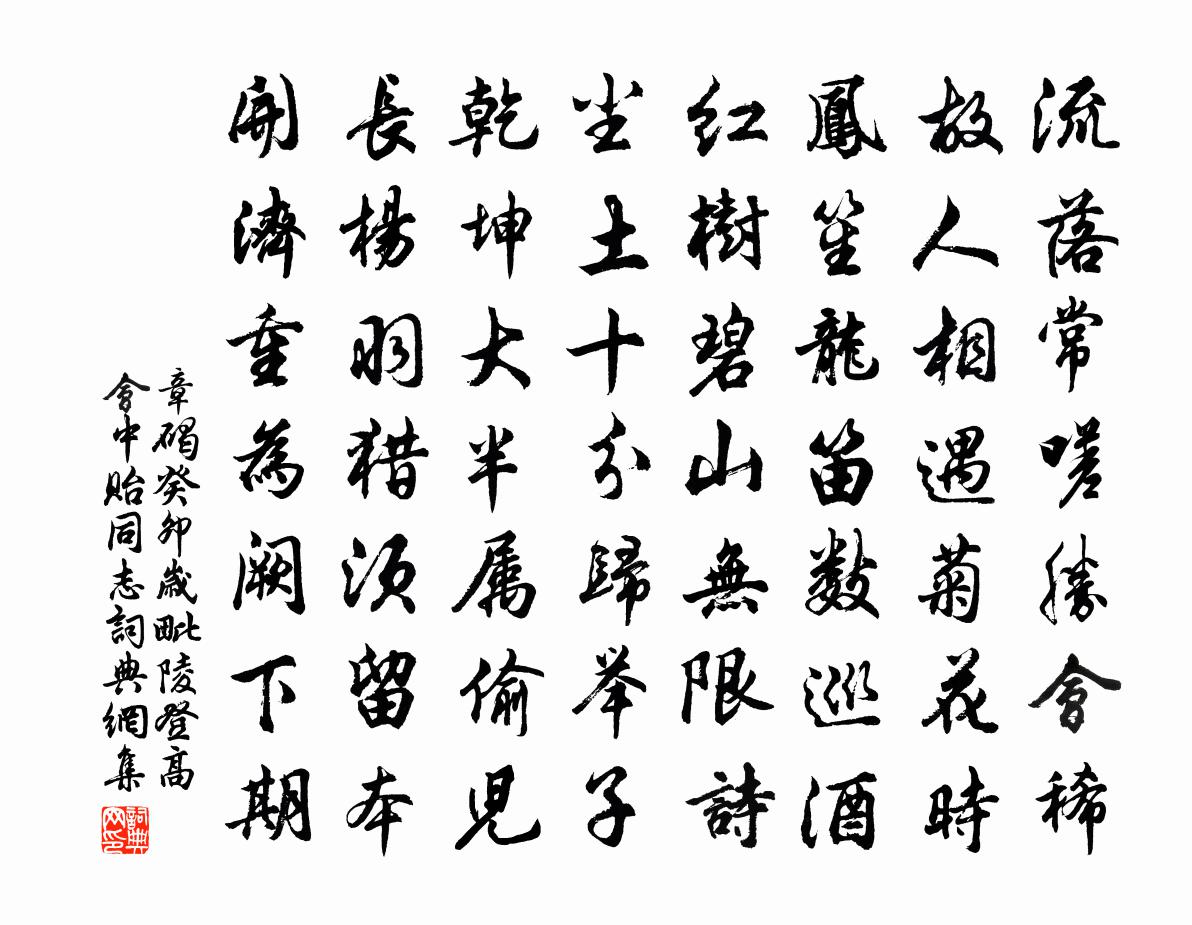 流落常嗟勝會稀
故人相遇菊花時
鳳笙龍笛數巡酒
紅樹碧山無限詩
尘土十分歸举子
乾坤大半属偷兒
長楊羽猎须留本
開濟重為阙下期
章碣癸卯歲毗陵登高
會中貽同志詞典網集
詞典
网印